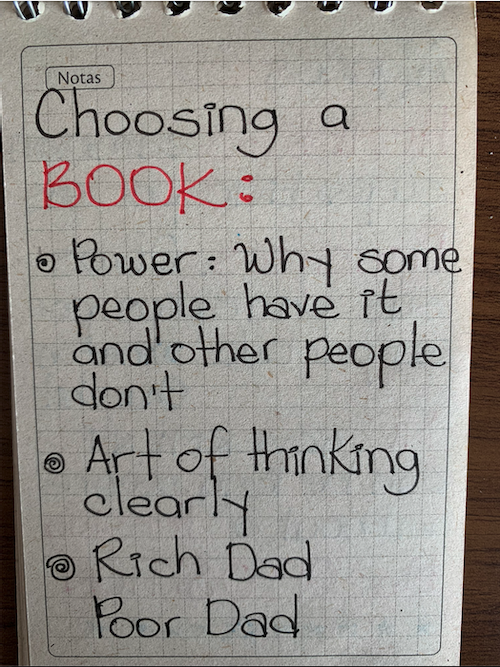 Notas
Choosing a
BOOK:
Power: Why some
people have it
and other people
don't
Art of thinking
clearly
Rich Dad
Poor Dad